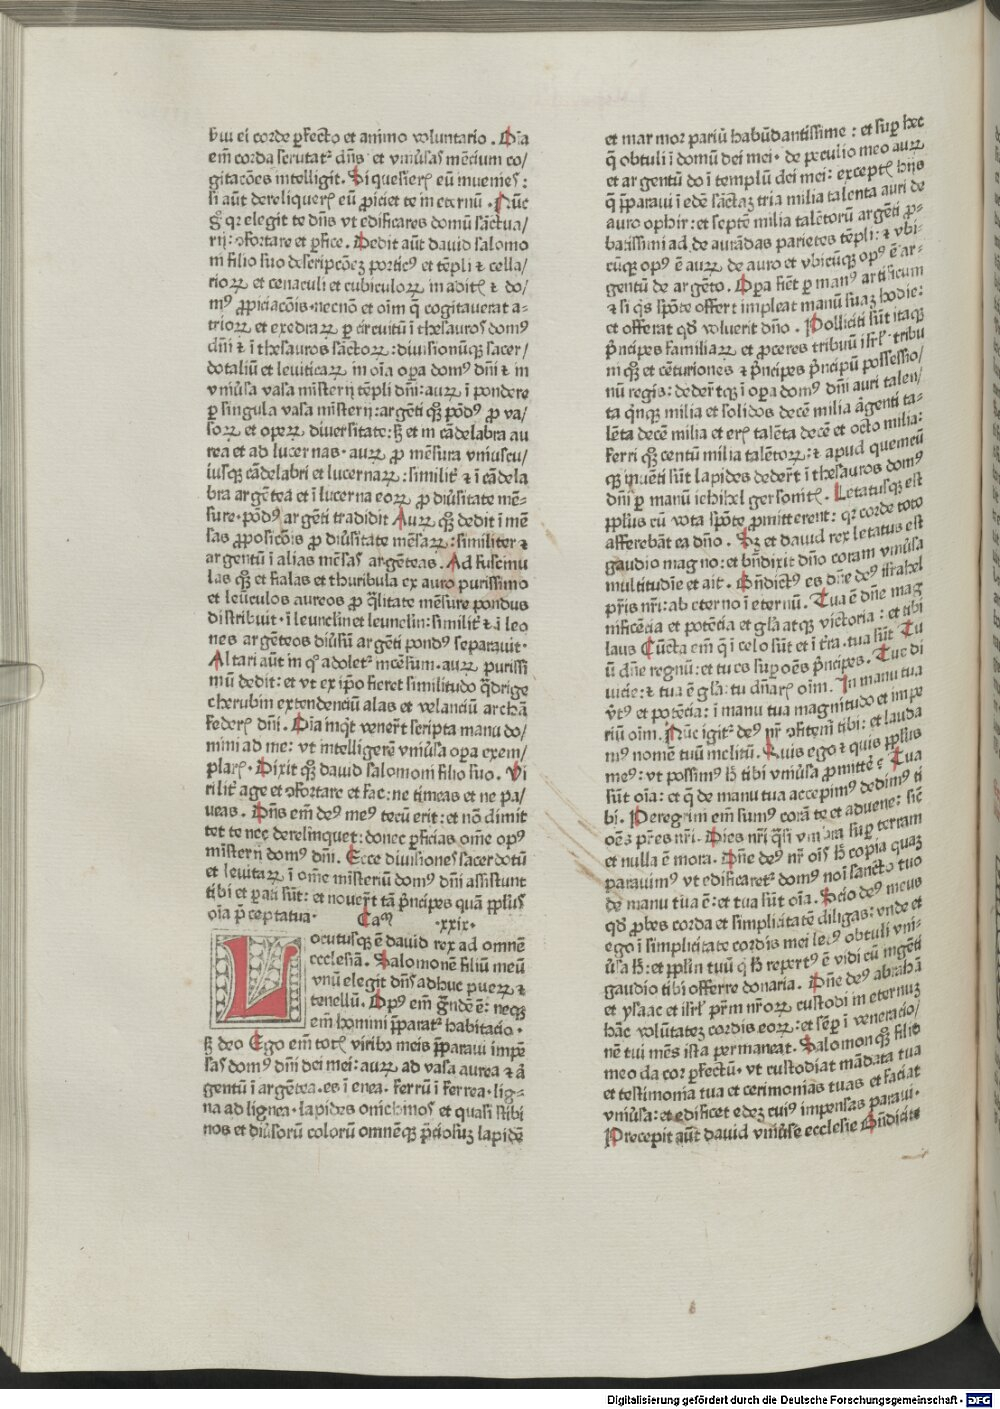 bvu ei corde ꝑfecto et animo voluntario. Oīa
em̄ corda scrutatᷣ dn̄s et vniūsas mētium co/
gitacōes intelligit. Si quesierꝭ eū inuenies:
si aūt dereliquerꝭ eū ꝓiciet te in eternū. Nūc
gͦ qꝛ elegit te dn̄s vt edificares domū sāctua/
rij: ꝯfortare et ꝑfice. Dedit aūt dauid salomo
ni filio suo descripcōeꝫ porticꝰ et tēpli ⁊ cella/
rioꝝ et cenaculi et cubiculoꝝ in aditꝭ ⁊ do/
mꝰ ꝓpiciacōis. necnō et oīm q̄ cogitauerat a-
trioꝝ et exedraꝝ ꝑ circuitū ī thesauros domꝰ
dn̄i ⁊ ī thesauros sāctoꝝ: diuisionūqꝫ sacer/
dotaliū et leuiticaꝝ in oīa oꝑa domꝰ dn̄i ⁊ in
vniūsa vasa mīsterij tēpli dn̄i: auꝝ ī pondere
ꝑ singula vasa mīsterij: argēti qꝫ pōdꝰ ꝓ va/
soꝝ et opeꝝ diuersitate: sꝫ et in cādelabra au
rea et ad lucernas. auꝝ ꝓ mēsura vniuscu/
iusqꝫ cādelabri et lucernaꝝ: similitᷣ ⁊ ī cādela
bra argētea et ī lucerna eoꝝ ꝓ diūsitate mē-
sure. pōdꝰ argēti tradidit Auꝝ qꝫ dedit ī mē
sas ꝓposicōis ꝓ diūsitate mēsaꝝ: similiter ⁊
argentū ī alias mēsas argēteas. Ad fuscinu
las qꝫ et fialas et thuribula ex auro purissimo
et leūculos aureos ꝓ q̄litate mēsure pondus
distribuit. ī leunclin et leunclin: similitᷣ ⁊ ī leo
nes argēteos diūsū argēti pondꝰ separauit.
Altari aūt in qͦ adoletᷣ incēsum. auꝝ purissi
mū dedit: et vt ex ip̄o fieret similitudo q̄drige
cherubin extendenciū alas et velanciū archā
federꝭ dn̄i. Oīa inqͥt venert̄ scripta manu do/
mini ad me: vt intelligerē vniūsa oꝑa exem/
plarꝭ. Dixit qꝫ dauid salomoni filio suo. Vi
rilitᷣ age et ꝯfortare et fac: ne timeas et ne pa/
ueas. Dn̄s em̄ deꝰ meꝰ tecū erit: et nō dimit
tet te nec derelinquet: donec ꝑficias om̄e opꝰ
mīsterij domꝰ dn̄i. Ecce diuisiones sacerdotū
et leuitaꝝ ī om̄e misteriū domꝰ dn̄i assistunt
tibi et ꝑati sūt: et nouert̄ tā p̄ncipes quā ppl̄us
oīa p̄cepta tua. Caꝫ .xxix.
Locutusqꝫ ē dauid rex ad omnē
ecclesiā. Salomonē filiū meū
vnū elegit dn̄s adhuc pueꝝ ⁊
tenellū. Opꝰ em̄ grāde ē: neqꝫ
em̄ homini p̄paratᷣ habitacio.
sꝫ deo Ego em̄ totꝭ viribꝰ meis p̄paraui impē
sas domꝰ dn̄i dei mei: auꝝ ad vasa aurea ⁊ ar
gentū ī argētea. es ī enea. ferrū ī ferrea. lig-
na ad lignea. lapides onichinos et quasi stibi
nos et diūsorū colorū omnēqꝫ p̄ciosuꝫ lapidē
et marmor pariū habūdantissime: et suꝑ hec
q̄ obtuli ī domū dei mei. de peculio meo auꝝ
et argentū do ī templū dei mei: exceptꝭ hijs
q̄ p̄paraui ī edē sāctaꝫ tria milia talenta auri de
auro ophir: et septē milia talētorū argēti ꝓ-
batissimi ad deaurādas parietes tēpli: ⁊ vbi-
cūqꝫ opꝰ ē auꝝ de auro et vbicūqꝫ opꝰ ē ar-
gentū de argēto. Oꝑa fiēt ꝑ manꝰ artificum
⁊ si qͥs spōte offert impleat manū suaꝫ hodie:
et offerat qd̄ voluerit dn̄o. Polliciti sūt itaqꝫ
p̄ncipes familiaꝝ et ꝓceres tribuū isrl̄. tribu
ni qꝫ et cēturiones ⁊ p̄ncipes p̄ncipū possessio/
nū regis: dedert̄qꝫ ī oꝑa domꝰ dn̄i auri talen/
ta qͥnqꝫ milia et solidos decē milia argenti ta-
lēta decē milia et erꝭ talēta decē et octo milia:
ferri qꝫ centū milia talētoꝝ: ⁊ apud quemcū
qꝫ inuēti sūt lapides dedert̄ ī thesauros domꝰ
dn̄i ꝑ manū ieihel gersonitꝭ. Letatusqꝫ est
ppl̄us cū vota spōte ꝓmitterent: qꝛ corde toto
afferebāt ea dn̄o. Sꝫ et dauid rex letatus est
gaudio magno: et bn̄dixit dn̄o coram vniūsa
multitudīe et ait. Bn̄dictꝰ es dn̄e deꝰ israhel
pr̄is nr̄i: ab eterno ī eternū. Tua ē dn̄e mag
nificēcia et potēcia et gl̄a atqꝫ victoria: et tibi
laus Cūcta em̄ q̄ ī celo sūt et ī tr̄ra. tua sūt Tu
ū dn̄e regnū: et tu es suꝑ oēs p̄ncipes. Tue di
uicie: ⁊ tua ē gl̄a: tu dn̄arꝭ oīm. In manu tua
v̄tꝰ et potēcia: ī manu tua magnitudo et impe
riū oīm. Nūc igitᷣ deꝰ nr̄ ꝯfitem̄ tibi: et lauda
mꝰ nomē tuū inclitū. Quis ego ⁊ quis ppl̄us
meꝰ: vt possimꝰ hͦ tibi vniūsa ꝓmittē? Tua
sūt oīa: et q̄ de manu tua accepimꝰ dedimꝰ ti
bi. Peregrini em̄ sumꝰ corā te et aduene: sic̄
oēs pr̄es nr̄i. Dies nr̄i q̄si vmbra suꝑ terram
et nulla ē mora. Dn̄e deꝰ nr̄ oīs hͦ copia quaꝫ
parauimꝰ vt edificaretᷣ domꝰ noī sancto tuo
de manu tua ē: et tua sūt oīa. Scio deꝰ meus
qd̄ ꝓbes corda et simplicitatē diligas: vnde et
ego ī simplicitate cordis mei letꝰ obtuli vni-
ūsa hͦ: et ppl̄m tuū qͥ hͦ repertꝰ ē vidi cū ingēti
gaudio tibi offerre donaria. Dn̄e deꝰ abrahā
et ysaac et isrl̄ pr̄m nr̄oꝝ custodi in eternuꝫ
hāc volūtateꝫ cordis eoꝝ: et sēꝑ ī veneracio/
nē tui mēs ista permaneat. Salomon qꝫ filio
meo da cor ꝑfectū. vt custodiat mādata tua
et testimonia tua et cerimonias tuas et faciat
vniūsa: et edificet edeꝫ cuiꝰ impensas paraui.
Precepit aūt dauid vniūse ecclesie Bn̄dicite
Digitalisierung gefördert durch die Deutsche Forschungsgemeinschaft - DFG